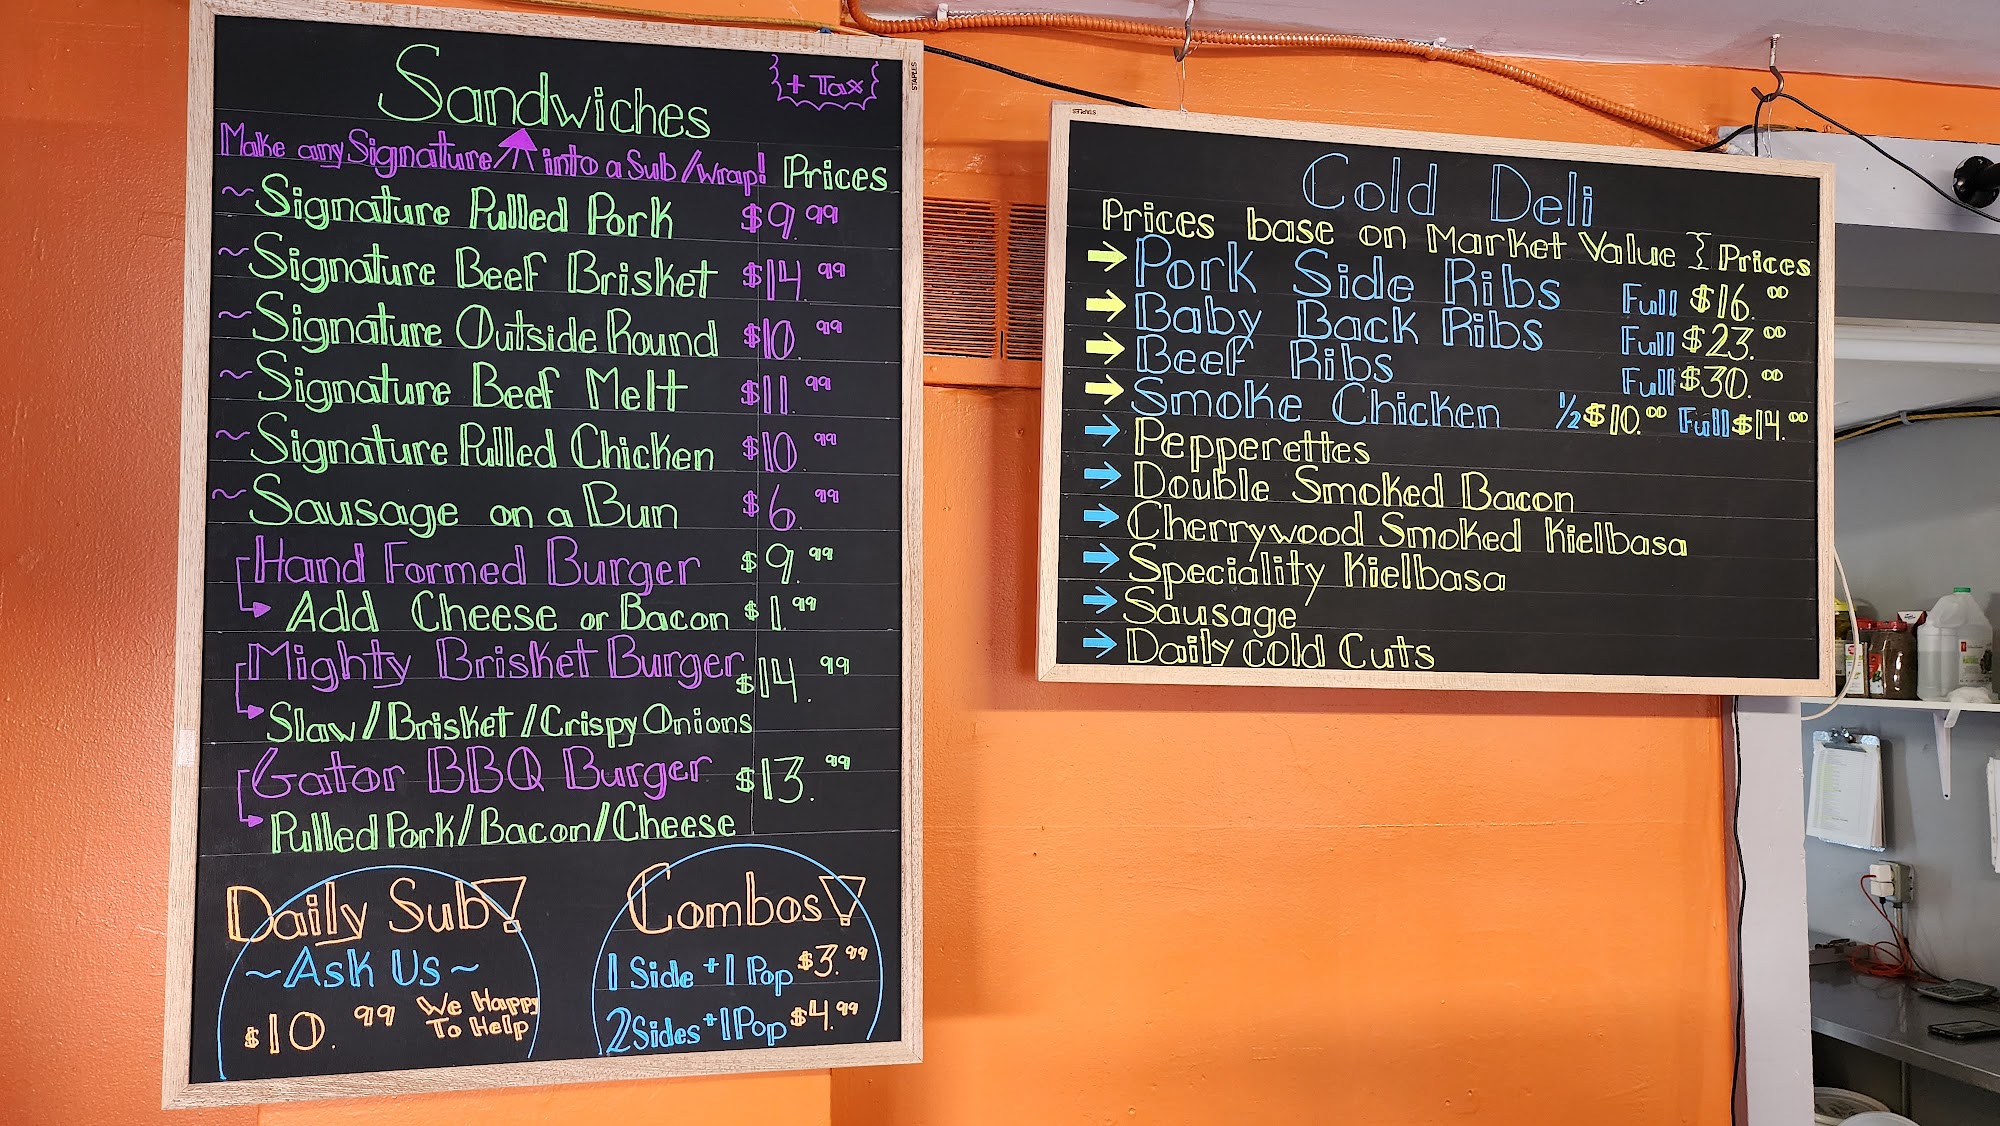 STAPLES
+ Tax
Sandwiches
Make any Signature into a Sub/wrap! Prices
~ Signature Pulled Pork $9.99
~ Signature Beef Brisket $14.99
~ Signature Outside Round $10.99
~ Signature Beef Melt $11.99
~ Signature Pulled Chicken $10.99
~ Sausage on a Bun $6.99
Hand Formed Burger $9.99
Add Cheese or Bacon $1.99
Mighty Brisket Burger $14.99
Slaw/Brisket/Crispy Onions
Gator BBQ Burger $13.99
Pulled Pork/Bacon/Cheese
Daily Sub!
~Ask Us~
$10.99 We Happy
To Help
Combos!
1 Side + 1 Pop $3.99
2 Sides + 1 Pop $4.99
STAPLES
Cold Deli
Prices base on Market Value } Prices
→ Pork Side Ribs Full $16.00
→ Baby Back Ribs Full $23.00
→ Beef Ribs Full $30.00
→ Smoke Chicken ½ $10.00 Full $14.00
→ Pepperettes
→ Double Smoked Bacon
→ Cherrywood Smoked Kielbasa
→ Speciality Kielbasa
→ Sausage
→ Daily Cold Cuts